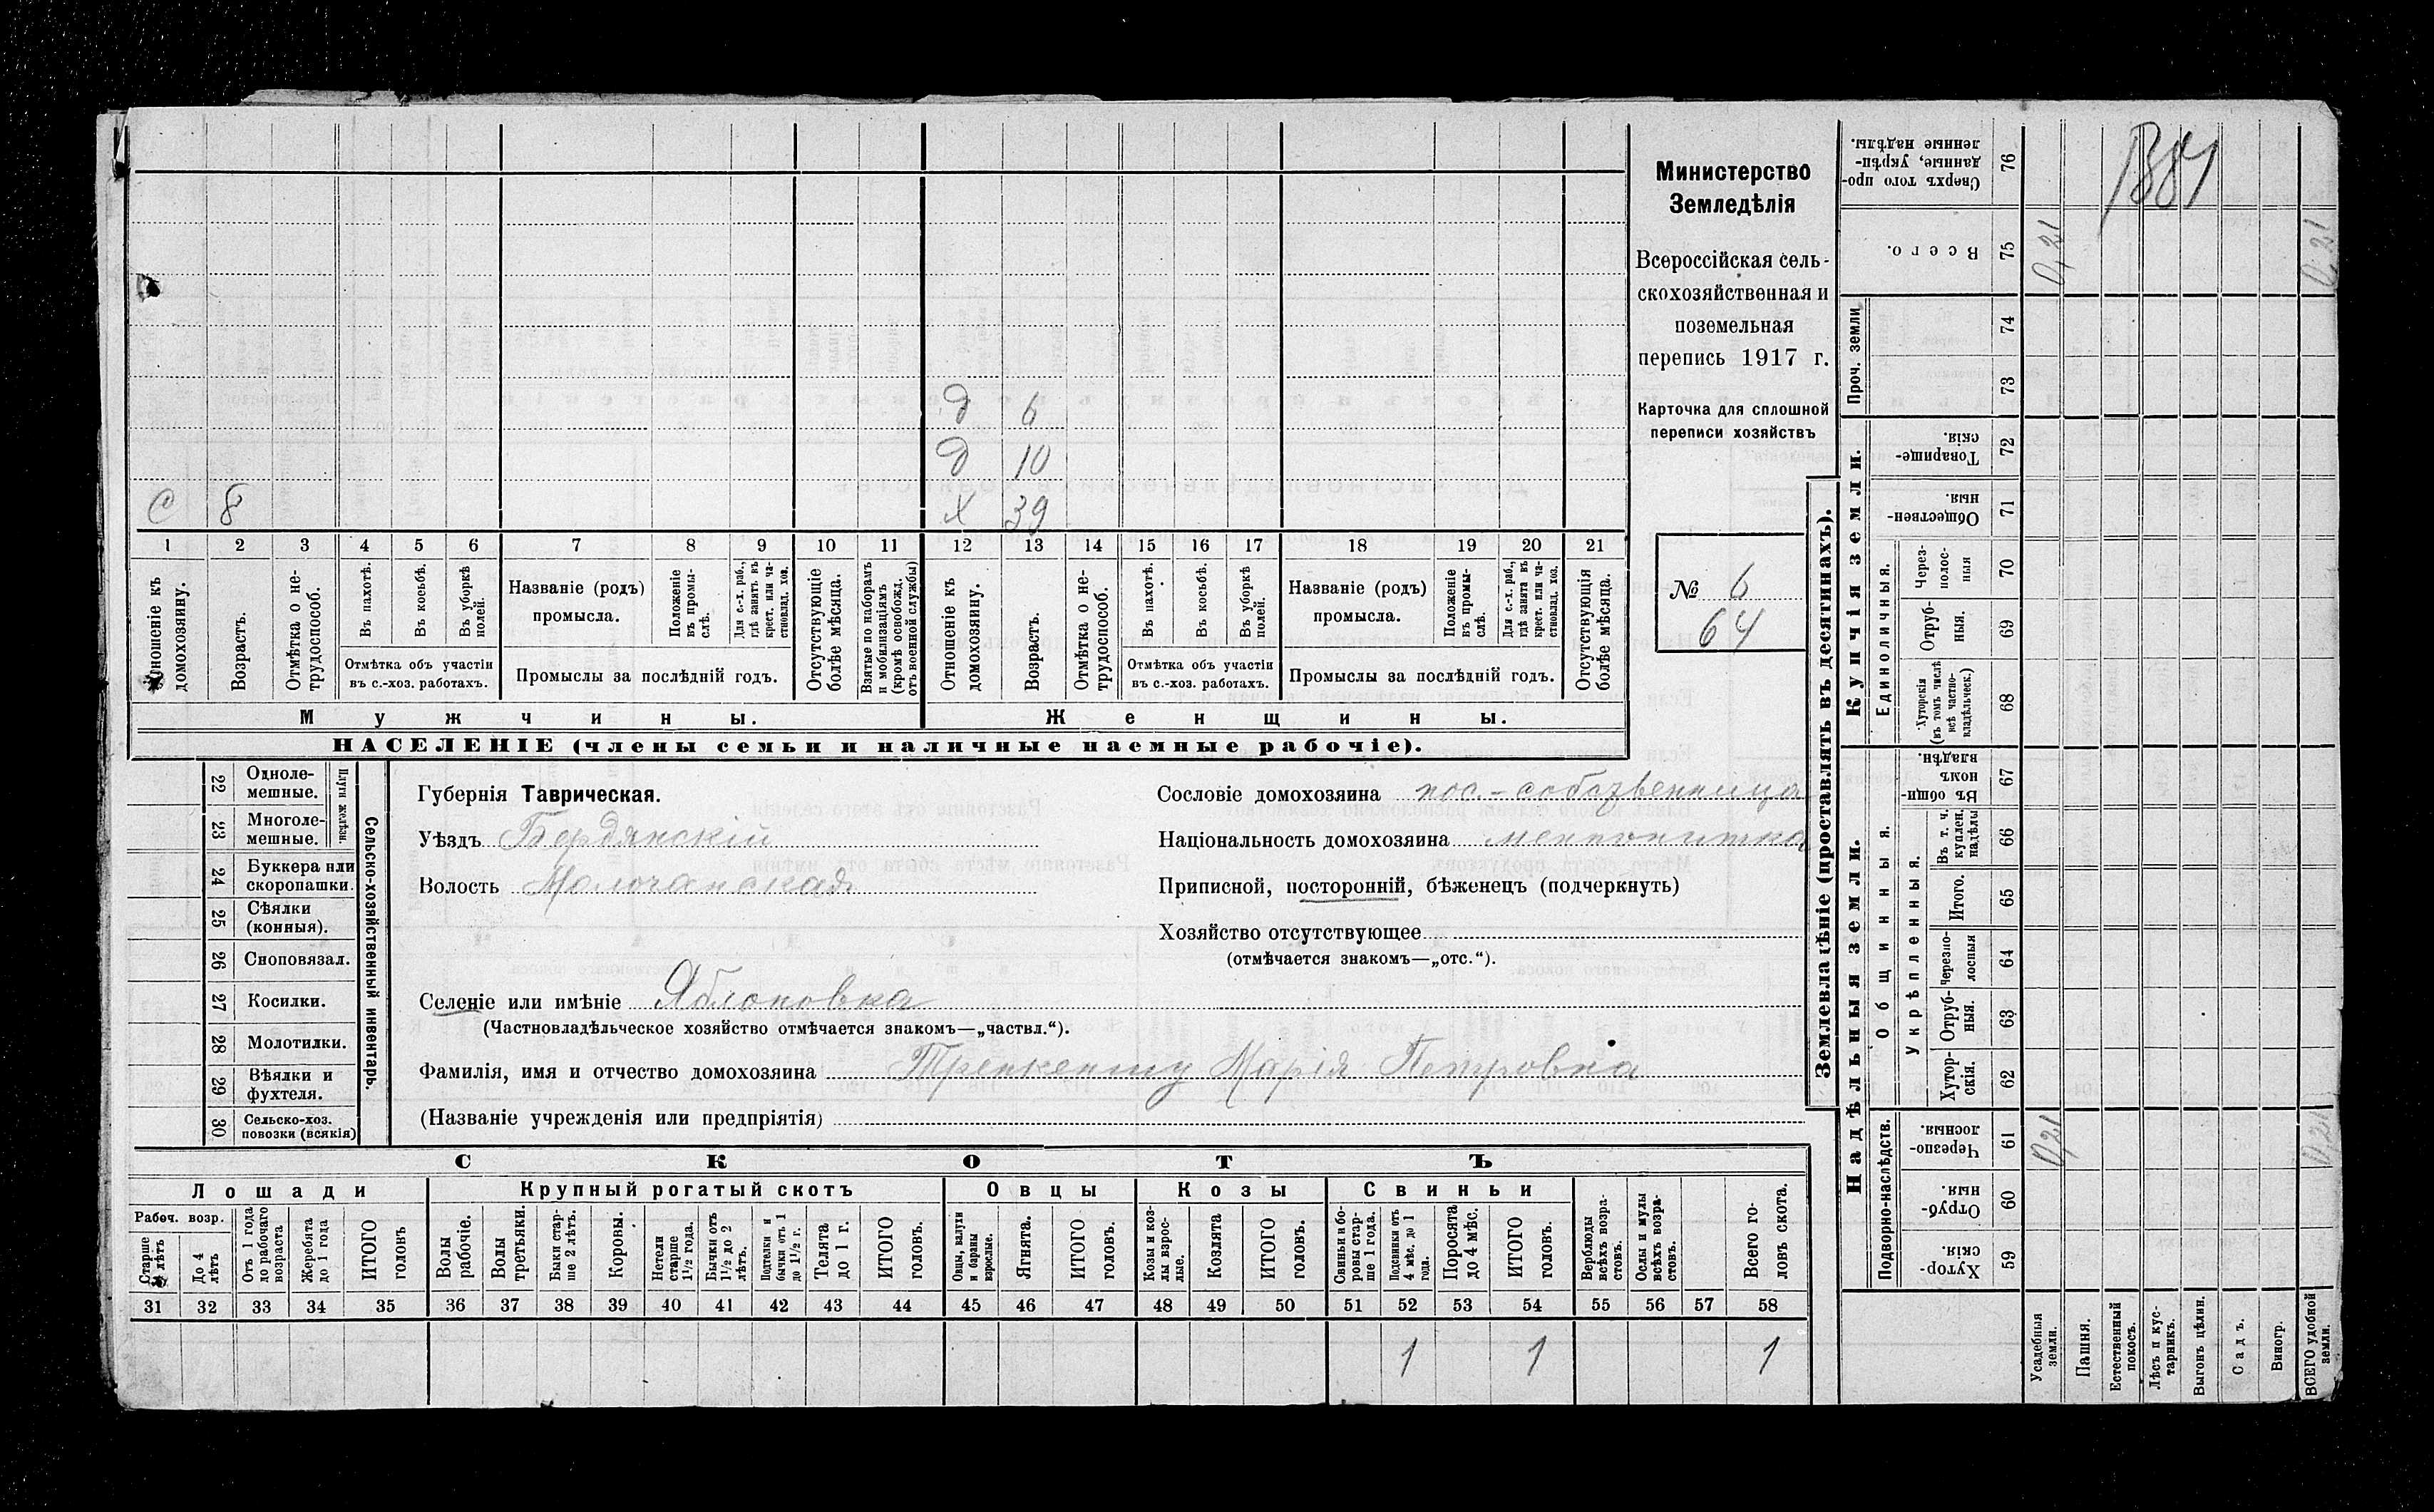 д 6
д 10
С 8 х 39
1 2 3 4 5 6 7 8 9 10 11 12 13 14 15 16 17 18 19 20 21
Отношеніе къ домохозяину.
Возрастъ.
Отмѣтка о не-трудоспособ.
Въ пахотѣ.
Въ косьбѣ.
Въ уборкѣ полей.
Отмѣтка объ участіи въ с.-хоз. работахъ.
Названіе (родъ) промысла.
Положеніе въ промы-слѣ.
Для с.-х. раб., гдѣ занятъ въ крест. или ча-стновлад. хоз.
Промыслы за послѣдній годъ.
Отсутствующіе болѣе мѣсяца.
Взятые по наборамъ и мобилизаціямъ (кромѣ освобожд. отъ военной службы)
Отношеніе къ домохозяину.
Возрастъ.
Отмѣтка о не-трудоспособ.
Въ пахотѣ.
Въ косьбѣ.
Въ уборкѣ полей.
Отмѣтка объ участіи въ с.-хоз. работахъ.
Названіе (родъ) промысла.
Положеніе въ промы-слѣ.
Для с.-х. раб., гдѣ занята въ крест. или ча-стновлад. хоз.
Промыслы за послѣдній годъ.
Отсутствующія болѣе мѣсяца.
Мужчины.
Женщины.
НАСЕЛЕНІЕ (члены семьи и наличные наемные рабочіе).
Министерство
Земледѣлія
Всероссійская сель-
скохозяйственная и
поземельная
перепись 1917 г.
Карточка для сплошной
переписи хозяйствъ
№ 6
64
Сельско-хозяйственный инвентарь.
Плуги желѣзн.
22 Одноле-мешные.
23 Многоле-мешные.
24 Буккера или скоропашки.
25 Сѣялки (конныя).
26 Сноповязал.
27 Косилки.
28 Молотилки.
29 Вѣялки и фухтеля.
30 Сельско-хоз. повозки (всякія)
Губернія Таврическая.
Уѣздъ Бердянскій
Волость Молочанская
Сословіе домохозяина пос.-собственница
Національность домохозяина меннонитка
Приписной, посторонній, бѣженецъ (подчеркнуть)
Хозяйство отсутствующее
(отмѣчается знакомъ—„отс.“).
Селеніе или имѣніе Яблоновка
(Частновладѣльческое хозяйство отмѣчается знакомъ—„частвл.“).
Фамилія, имя и отчество домохозяина Тренкеншу Марія Петровна
(Названіе учрежденія или предпріятія)
СКОТЪ
Лошади
Крупный рогатый скотъ
Овцы
Козы
Свиньи
Рабоч. возр.
Старше 4 лѣтъ
До 4 лѣтъ
Отъ 1 года до рабочаго возраста
Жеребята до 1 года
ИТОГО головъ
Волы рабочіе.
Волы третьяки.
Быки стар-ше 2 лѣтъ.
Коровы.
Нетели старше 1½ года.
Бычки отъ 1½ до 2 лѣтъ.
Подтелки и бычки отъ 1 до 1½ г.
Телята до 1 г.
ИТОГО головъ.
Овцы, валухи и бараны взрослые.
Ягнята.
ИТОГО головъ.
Козы и коз-лы взрос-лые.
Козлята
ИТОГО головъ.
Свиньи и бо-ровы стар-ше 1 года.
Подсвинки отъ 4 мѣс. до 1 года.
Поросята до 4 мѣс.
ИТОГО головъ.
Верблюды всѣхъ возра-стовъ.
Ослы и мулы всѣхъ возра-стовъ.
Всего го-ловъ скота.
31 32 33 34 35 36 37 38 39 40 41 42 43 44 45 46 47 48 49 50 51 52 53 54 55 56 57 58
1 1 1
Землевладѣніе (проставлять въ десятинахъ).
1381
76 Сверхъ того про-данные, укрѣп-ленные надѣлы.
75 Всего. 0,21 0,21
Проч. земли
74
73
Купчія земли.
72 Товарище-скія.
71 Обществен-ныя.
Единоличныя.
70 Через-полос-ныя
69 Отруб-ныя.
68 Хуторскія (въ томъ числѣ всѣ частно-владѣльческ.)
Надѣльныя земли.
67 Въ общин-номъ владѣн.
Общинныя.
Укрѣпленныя.
66 Въ т. ч. куплен. надѣлы
65 Итого.
64 Черезпо-лосныя
63 Отруб-ныя.
62 Хутор-скія.
Подворно-наслѣдств.
61 Черезпо-лосныя 0,21 0,21
60 Отруб-ныя.
59 Хутор-скія.
Усадебныя земли.
Пашня.
Естественный покосъ.
Лѣсъ и кус-тарникъ.
Выгонъ цѣлин.
Садъ.
Виногр.
ВСЕГО удобной земли.